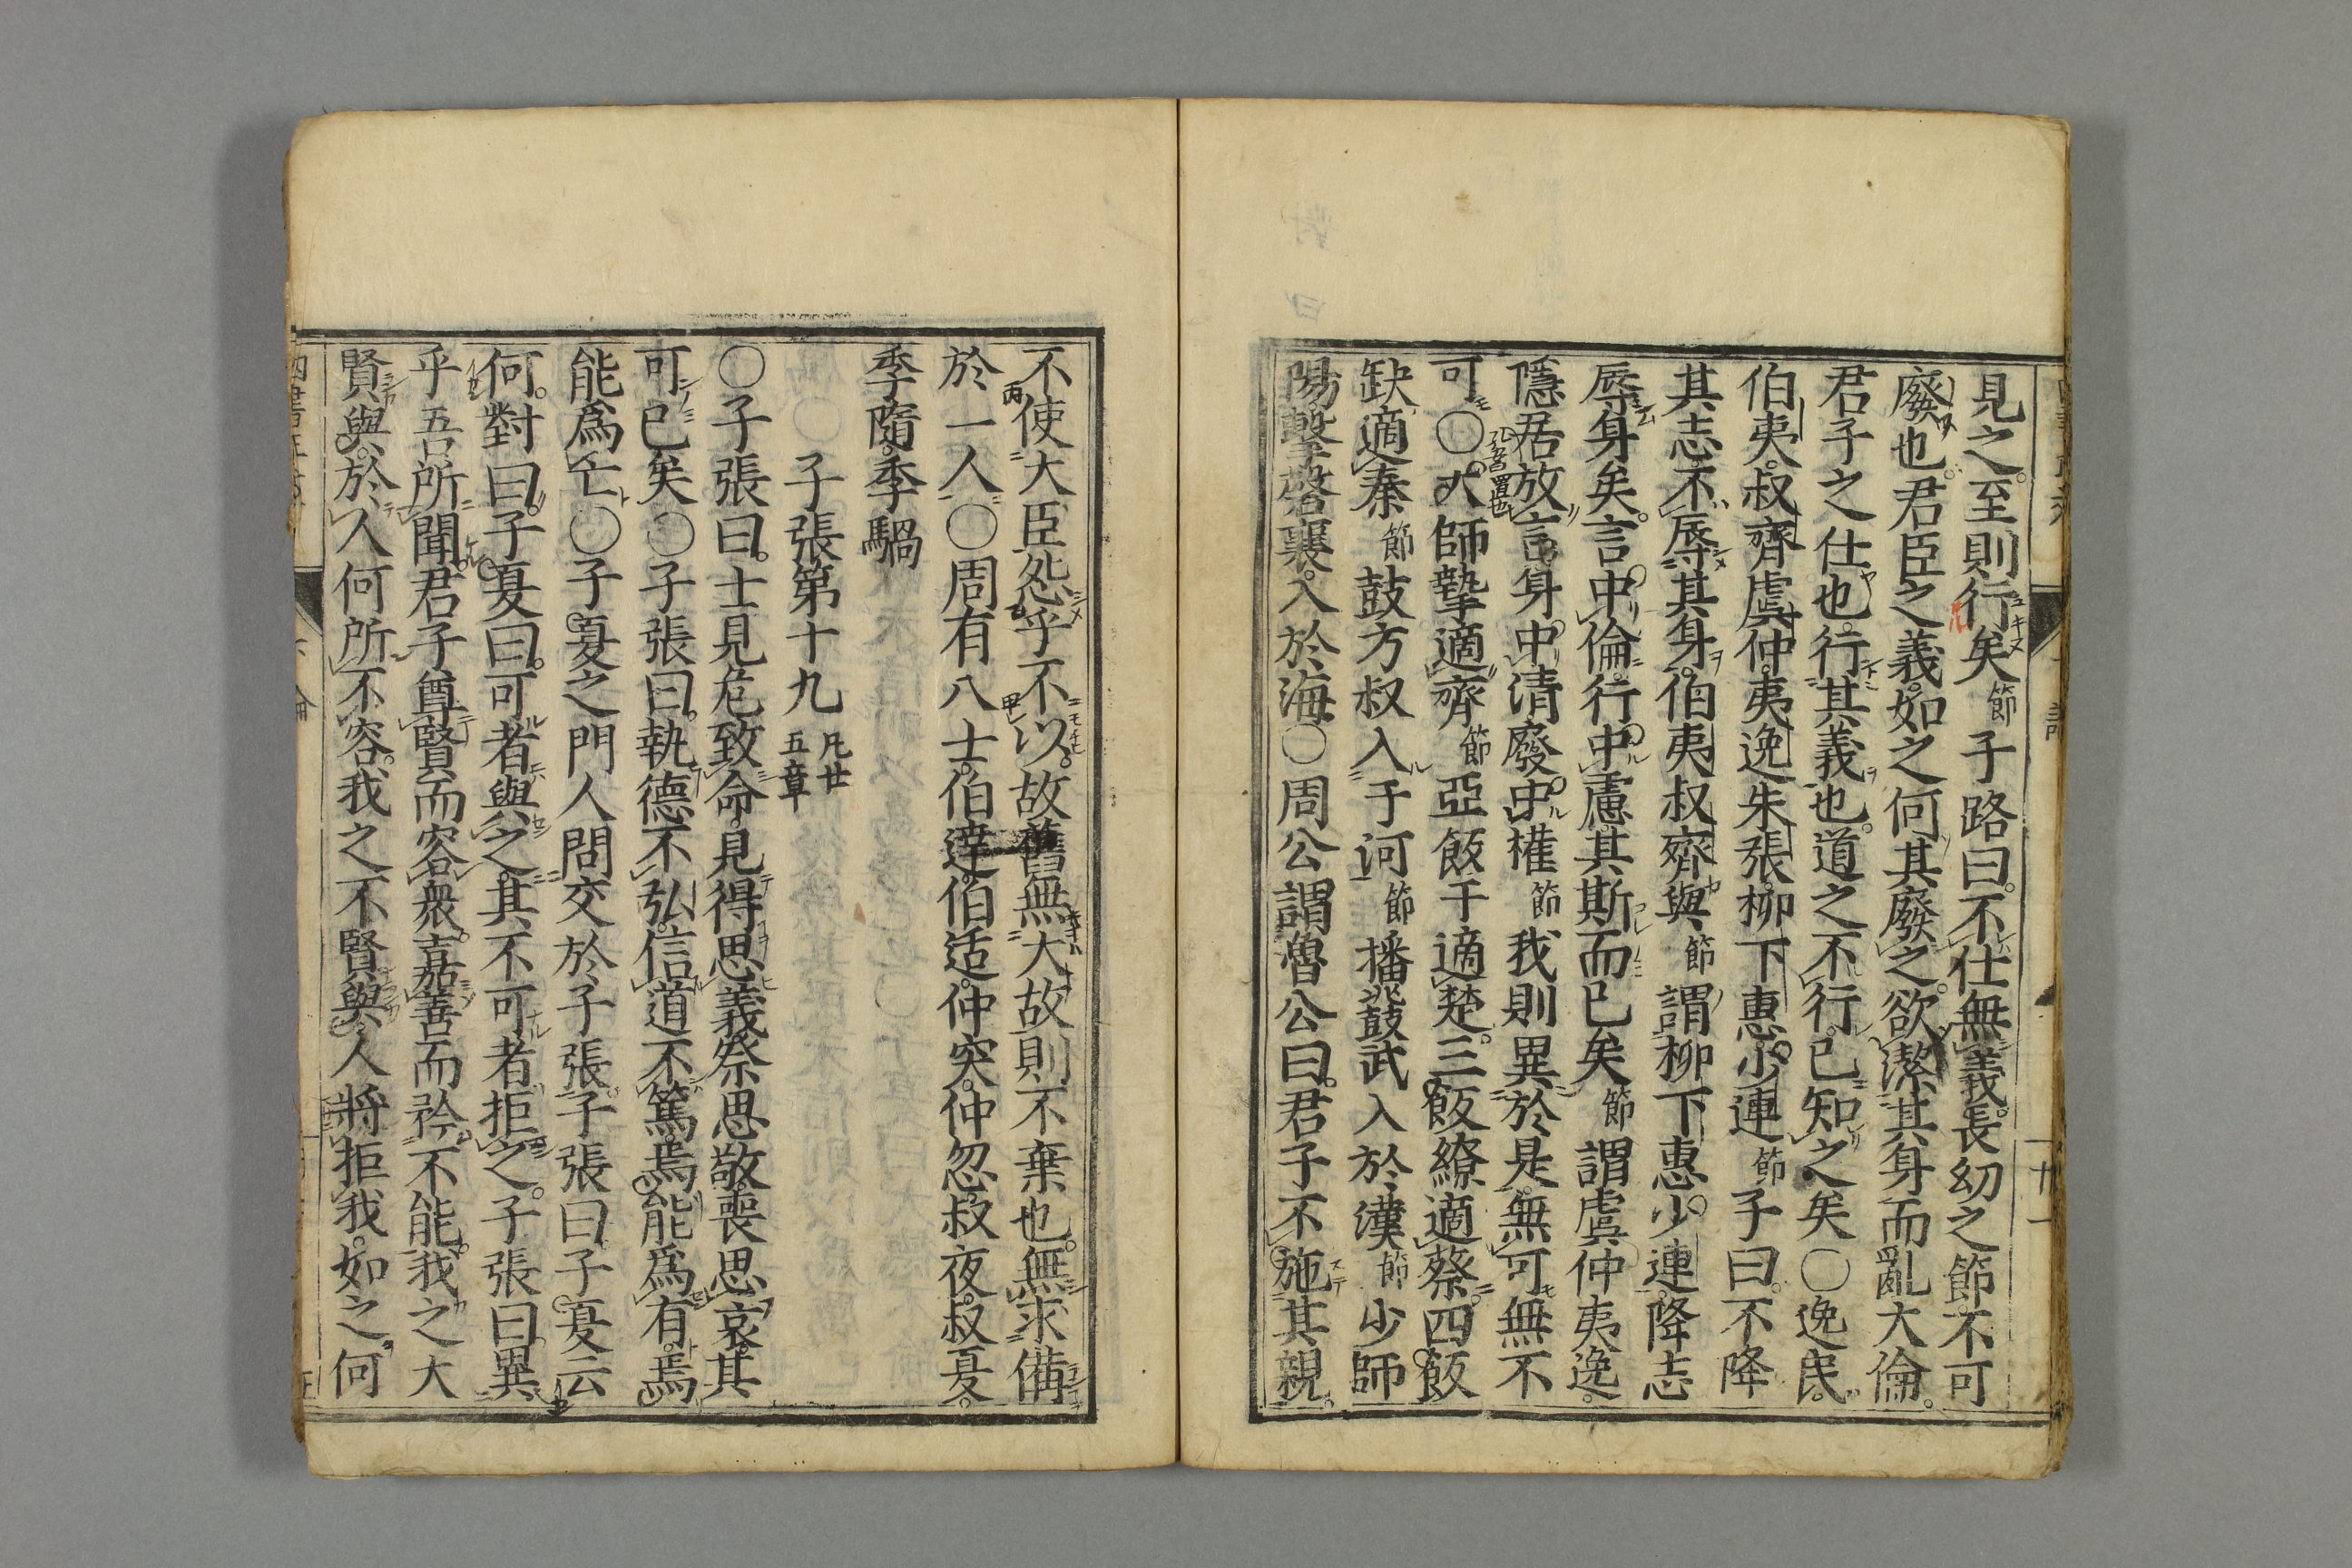 見之至則行矣節子路曰不仕無義長幼之節不可
廢也君臣之義如之何其廢之欲潔其身而亂大倫
君子之仕也行其義也道之不行已知之矣○逸民
伯夷叔齊虞仲夷逸朱張柳下惠少連節子曰不降
其志不辱其身伯夷叔齊與節謂柳下惠少連降志
辱身矣言中倫行中慮其斯而已矣節謂虞仲夷逸
隱居放言身中清廢中權節我則異於是無可無不
可○大師摯適齊節亞飯干適楚三飯繚適蔡四飯
缺適秦節鼓方叔入于河節播鼗武入於漢節少師
陽擊磬襄入於海○周公謂魯公曰君子不施其親
不使大臣怨乎不以故舊無大故則不棄也無求備
於一人○周有八士伯達伯适仲突仲忽叔夜叔夏
季隨季騧
子張第十九 凡廿五章
○子張曰士見危致命見得思義祭思敬喪思哀其
可已矣○子張曰執德不弘信道不篤焉能爲有焉
能爲亡○子夏之門人問交於子張子張曰子夏云
何對曰子夏曰可者與之其不可者拒之子張曰異
乎吾所聞君子尊賢而容衆嘉善而矜不能我之大
賢與於人何所不容我之不賢與人將拒我如之何